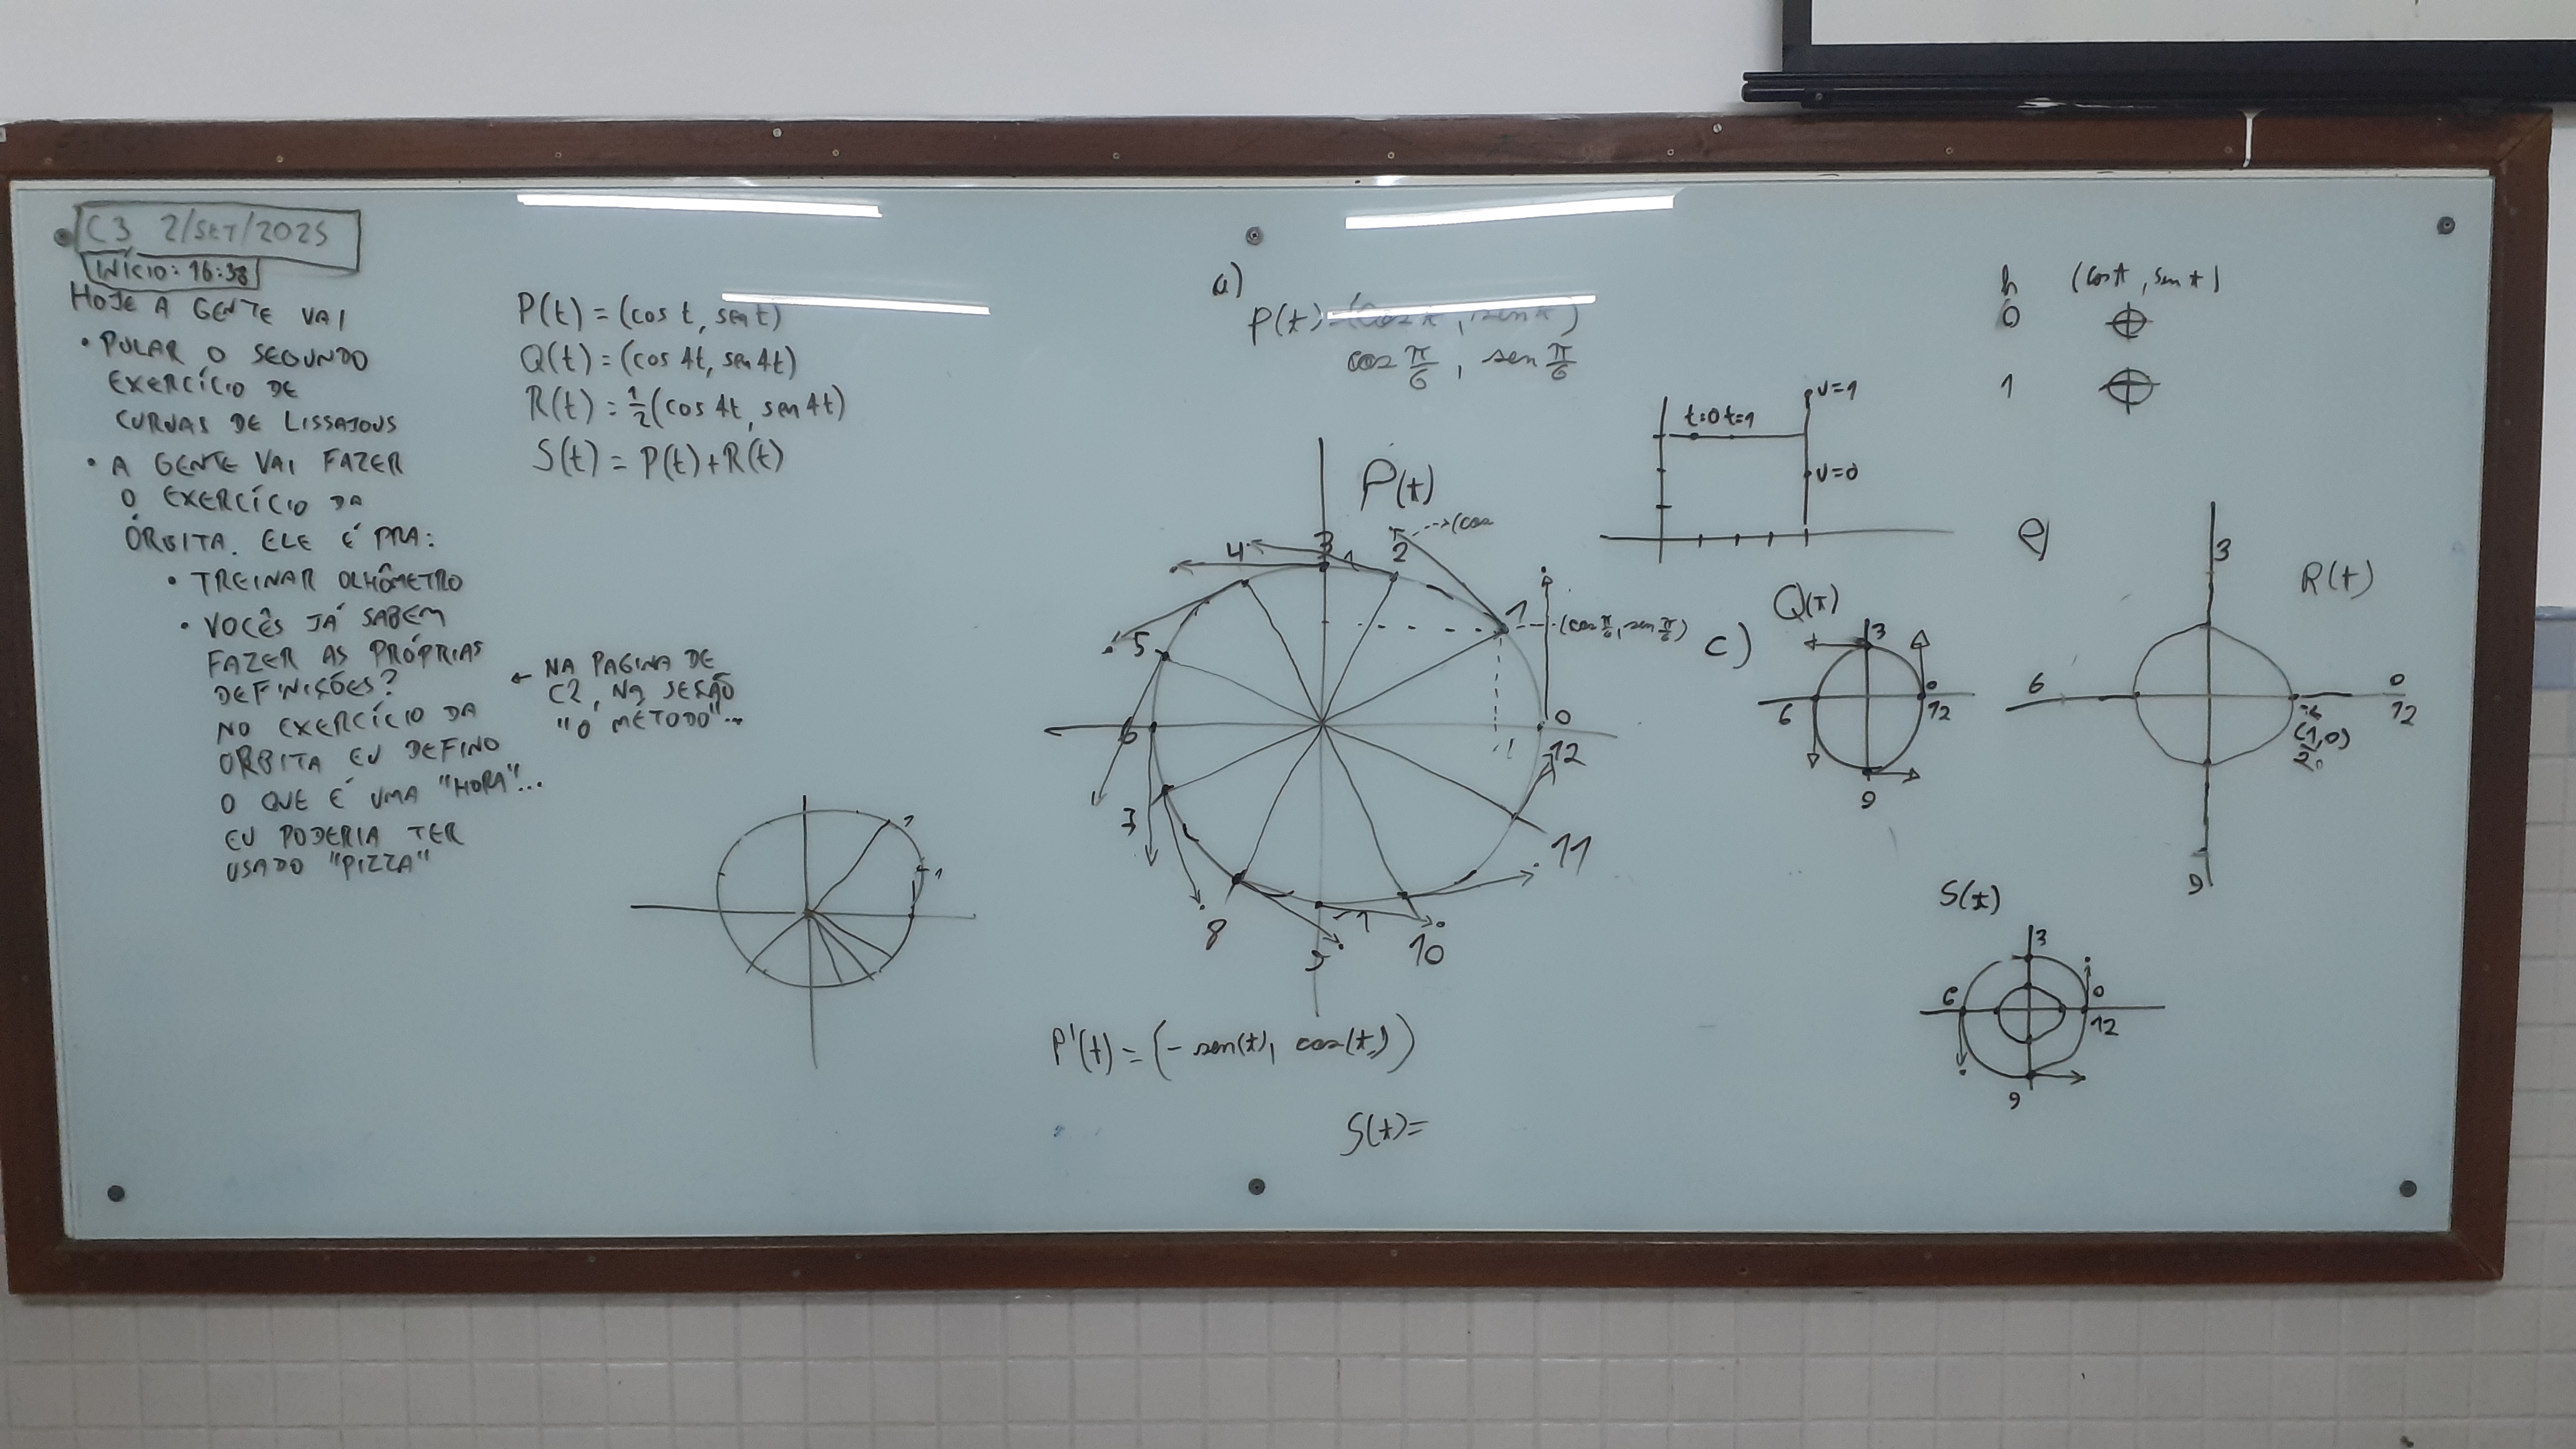 C3 2/SET/2025
INÍCIO: 16:38
HOJE A GENTE VAI
• PULAR O SEGUNDO
EXERCÍCIO DE
CURVAS DE LISSAJOUS
• A GENTE VAI FAZER
O EXERCÍCIO DA
ÓRBITA. ELE É PRA:
• TREINAR OLHÔMETRO
• VOCÊS JÁ SABEM
FAZER AS PRÓPRIAS
DEFINIÇÕES?
NO EXERCÍCIO DA
ÓRBITA EU DEFINO
O QUE É UMA "HORA"...
EU PODERIA TER
USADO "PIZZA"
← NA PAGINA DE
C2, NA SEÇÃO
"O MÉTODO"...
P(t) = (cos t, sen t)
Q(t) = (cos 4t, sen 4t)
R(t) = 1/2 (cos 4t, sen 4t)
S(t) = P(t)+R(t)
a)
P(t)=(cos t, sen t)
cos π/6, sen π/6
P(t)
(cos
(cos π/6, sen π/6)
0
12
1
2
3
1
4
5
6
7
8
9
-1
10
11
P'(t) = (-sen(t), cos(t))
S(t)=
t=0 t=1
v=1
v=0
h (cos t, sen t)
0
1
c)
Q(t)
3
0
12
6
9
e)
R(t)
3
6
0
12
(1/2,0)
9
S(t)
3
6
0
12
9